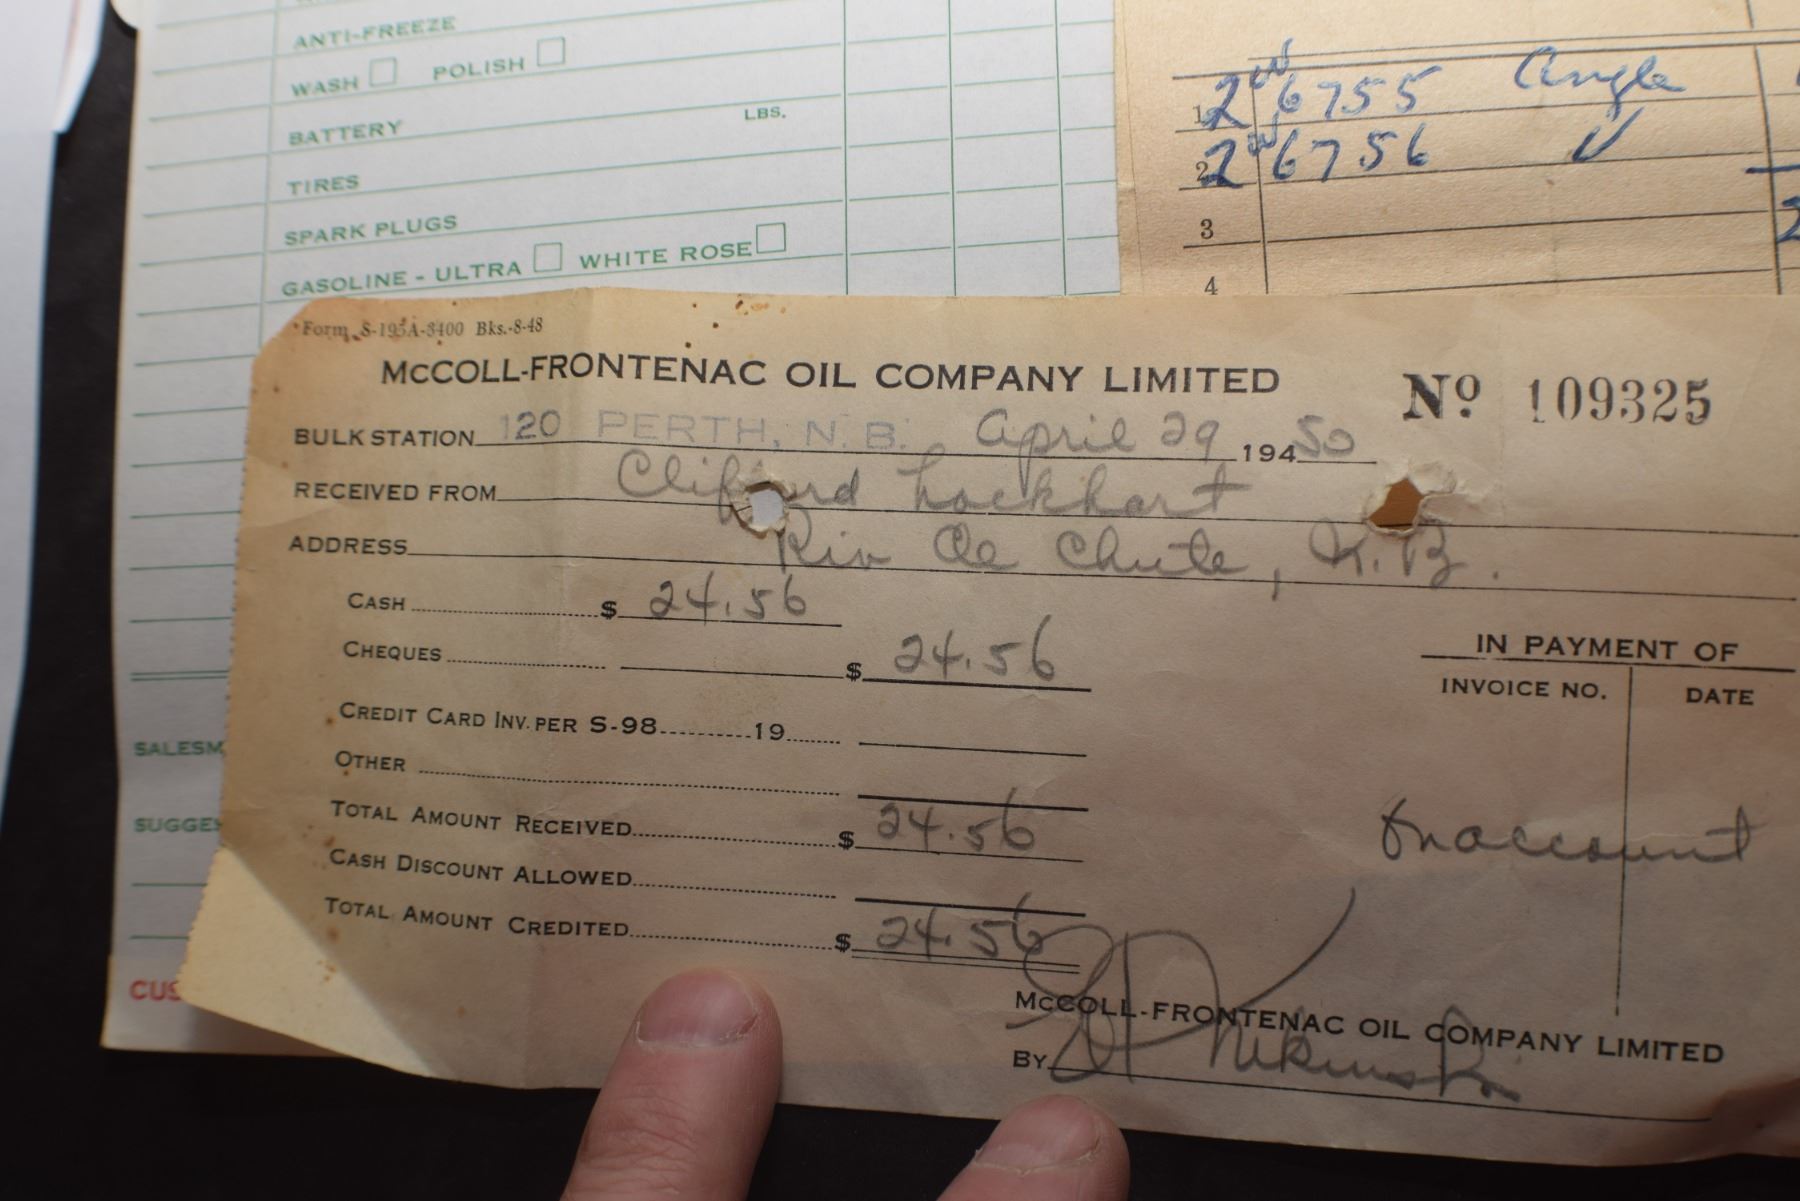 ANTI-FREEZE
WASH POLISH
BATTERY LBS.
TIRES
SPARK PLUGS
GASOLINE - ULTRA WHITE ROSE
SALESM
SUGGES
CUS
1 2 6755 Angle
2 2 6756 √
3
4
Form S-195A-3400 Bks.-8-48
McCOLL-FRONTENAC OIL COMPANY LIMITED
No 109325
BULK STATION 120 PERTH, N.B. April 29 194 50
RECEIVED FROM Clifford Lockhart
ADDRESS Riv De Chute, N.B.
CASH $ 24.56
CHEQUES $ 24.56
CREDIT CARD INV. PER S-98 19
OTHER
TOTAL AMOUNT RECEIVED $ 24.56
CASH DISCOUNT ALLOWED
TOTAL AMOUNT CREDITED $ 24.56
IN PAYMENT OF
INVOICE NO. DATE
On account
McCOLL-FRONTENAC OIL COMPANY LIMITED
BY